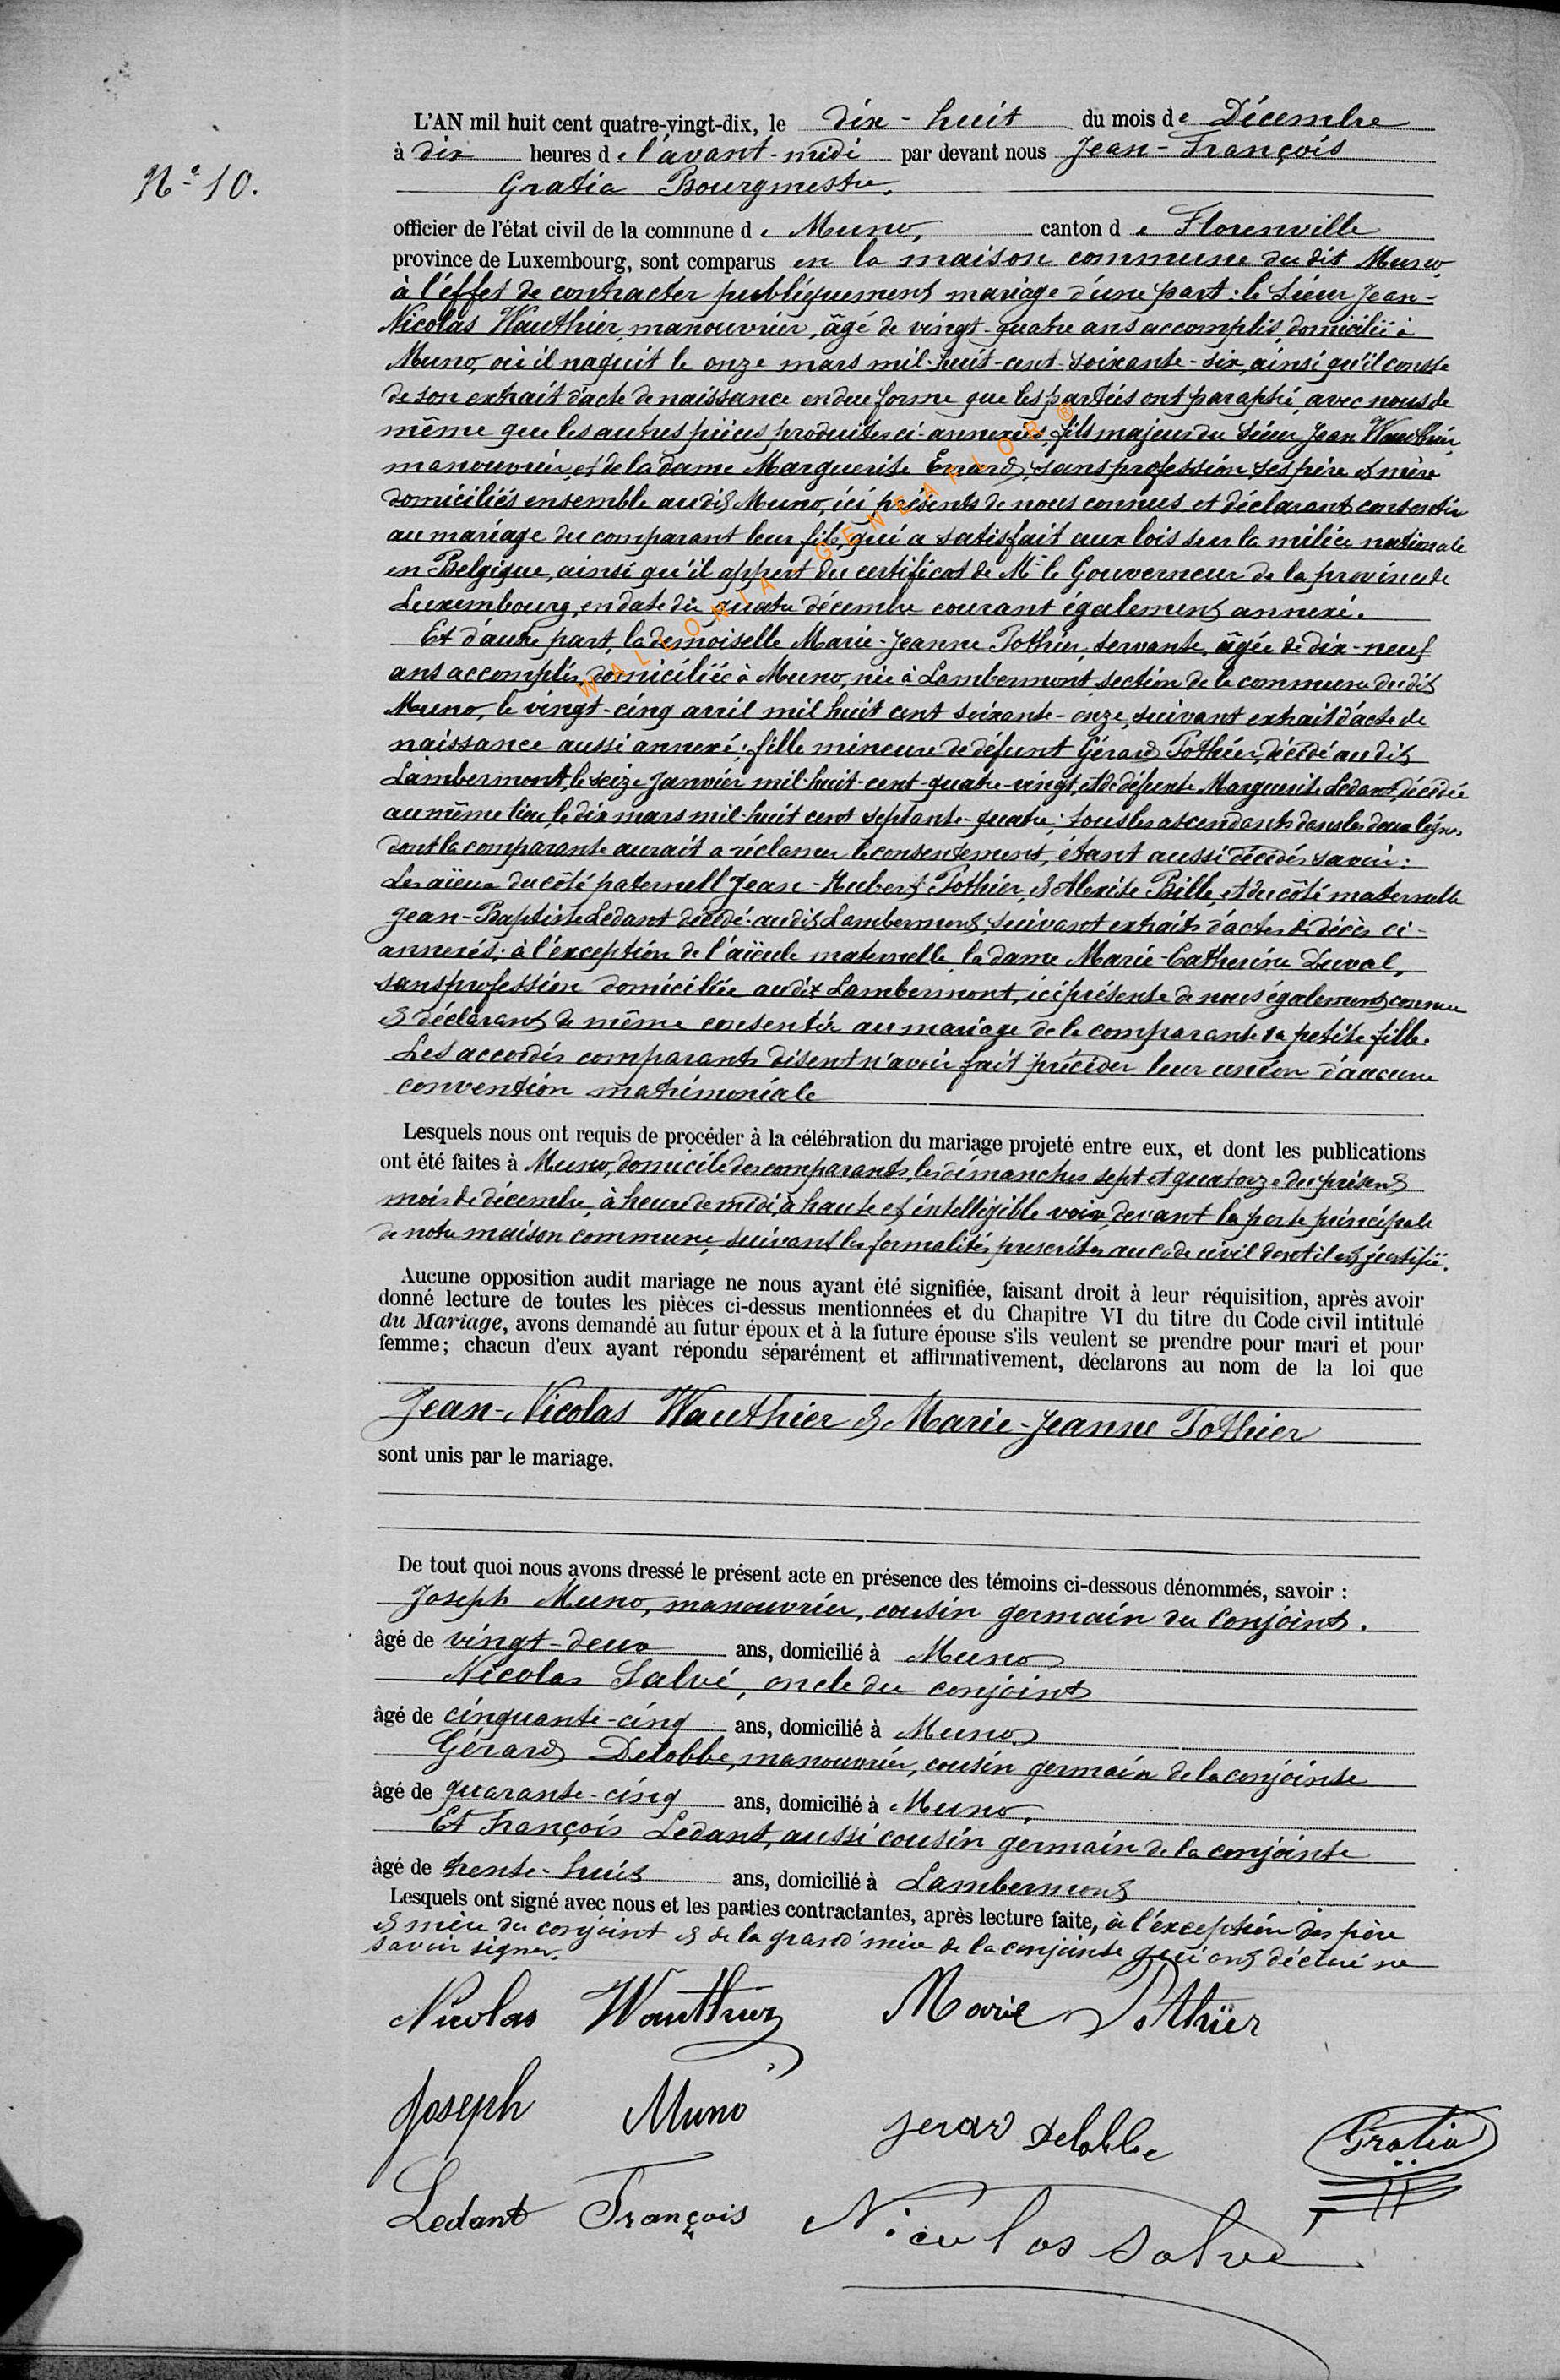 N° 10.
L'AN mil huit cent quatre-vingt-dix, le dix-huit du mois de Décembre
à dix heures de l'avant-midi par devant nous Jean-François
Gratia Bourgmestre,
officier de l'état civil de la commune de Muno, canton de Florenville
province de Luxembourg, sont comparus en la maison commune du dit Muno,
à l'effet de contracter publiquement mariage d'une part: le sieur Jean-
Nicolas Wauthier, manouvrier, âgé de vingt-quatre ans accomplis, domicilié à
Muno, où il naquit le onze mars mil-huit-cent-soixante-six, ainsi qu'il conste
de son extrait d'acte de naissance en due forme que les parties ont paraphé, avec nous de
même que les autres pièces produites ci-annexées, fils majeur du sieur Jean Wauthier,
manouvrier, et de la dame Marguerite Errard, sans profession, ses père et mère
domiciliés ensemble audit Muno, ici présents de nous connus et déclarant consentir
au mariage du comparant leur fils, qui a satisfait aux lois sur la milice nationale
en Belgique, ainsi qu'il appert du certificat de Mr le Gouverneur de la province de
Luxembourg, en date du quatre décembre courant également annexé.
Et d'autre part, la demoiselle Marie-Jeanne Pothier, servante, âgée de dix-neuf
ans accomplis, domiciliée à Muno, née à Lambermont, section de la commune du dit
Muno, le vingt-cinq avril mil huit cent soixante-onze, suivant extrait d'acte de
naissance aussi annexé; fille mineure de défunt Gérard Pothier, décédé au dit
Lambermont, le seize Janvier mil-huit-cent-quatre-vingt, et de défunte Marguerite Ledant, décédée
au même lieu, le dix mars mil-huit cent septante-quatre; tous les ascendants dans les deux lignes
dont la comparante aurait a réclamer le consentement, étant aussi décédés savoir:
Les aïeux du côté paternell Jean-Hubert Pothier, et Alexise Bille, et du côté maternelle
Jean-Baptiste Ledant décédé audit Lambermont, suivant extraits d'actes de décès ci-
annexés; à l'éxception de l'aïeule maternelle, la dame Marie-Catherine Duval,
sans profession domiciliée audit Lambermont, ici présente de nous également connue
et déclarant de même consentir au mariage de la comparante sa petite fille.
Les accordés comparants disent n'avoir fait précéder leur union d'aucune
convention matrimoniale
Lesquels nous ont requis de procéder à la célébration du mariage projeté entre eux, et dont les publications
ont été faites à Muno, domicile des comparants, les dimanches sept et quatorze du présent
mois de décembre, à heure de midi, à haute et intelligible voix, devant la porte principale
de notre maison commune, suivant les formalités prescrites au code civil dont il est justifié.
Aucune opposition audit mariage ne nous ayant été signifiée, faisant droit à leur réquisition, après avoir
donné lecture de toutes les pièces ci-dessus mentionnées et du Chapitre VI du titre du Code civil intitulé
du Mariage, avons demandé au futur époux et à la future épouse s'ils veulent se prendre pour mari et pour
femme; chacun d'eux ayant répondu séparément et affirmativement, déclarons au nom de la loi que
Jean-Nicolas Wauthier et Marie-Jeanne Pothier
sont unis par le mariage.
De tout quoi nous avons dressé le présent acte en présence des témoins ci-dessous dénommés, savoir :
Joseph Muno, manouvrier, cousin germain du Conjoint.
âgé de vingt-deux ans, domicilié à Muno
Nicolas Salvé, oncle du conjoint
âgé de cinquante-cinq ans, domicilié à Muno
Gérard Delobbe, manouvrier, cousin germain de la conjointe
âgé de quarante-cinq ans, domicilié à Muno,
Et François Ledant, aussi cousin germain de la conjointe
âgé de trente-huit ans, domicilié à Lambermont
Lesquels ont signé avec nous et les parties contractantes, après lecture faite, à l'éxception des père
et mère du conjoint et de la grand'mère de la conjointe qui ont déclaré ne
savoir signer.
Nicolas Wauthier Marie Pothier
Joseph Muno Jerard Delobbe Gratia
Ledant François Nicolas Salvé
WALLONIA - GENEAFLOR ®